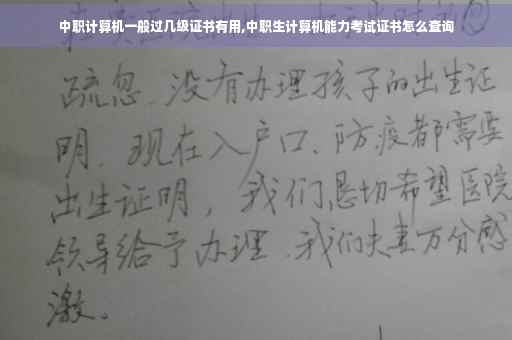 中职计算机一般过几级证书有用,中职生计算机能力考试证书怎么查询
疏忽、没有办理孩子的出生证
明、现在入户口、防疫都需要
出生证明，我们恳切希望医院
领导给予办理、我们夫妻万分感
激。